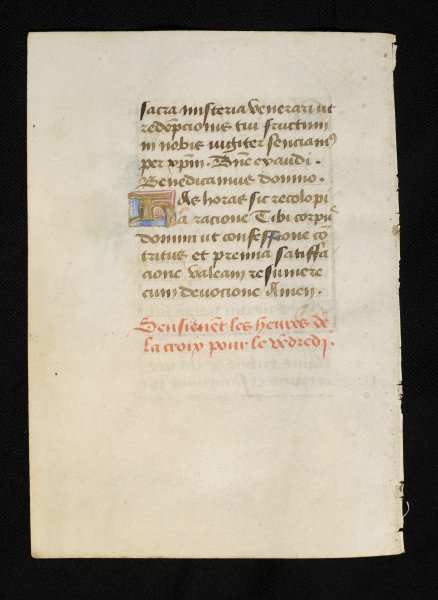 sacra misteria venerari ut
redẽpcionis tui fructum
in nobis iugiter senciamꝰ
per xp̃m. Dñe exaudi.
Benedicamus domino.
Has horas sic recolo pi
a racione Tibi corpuˢ
domini ut confessione cõ
tritus et premia satiffa
cione valeam resumere
cum devocione Amen.
Sensieuẽt les heures de
la croix pour le vẽdredi.